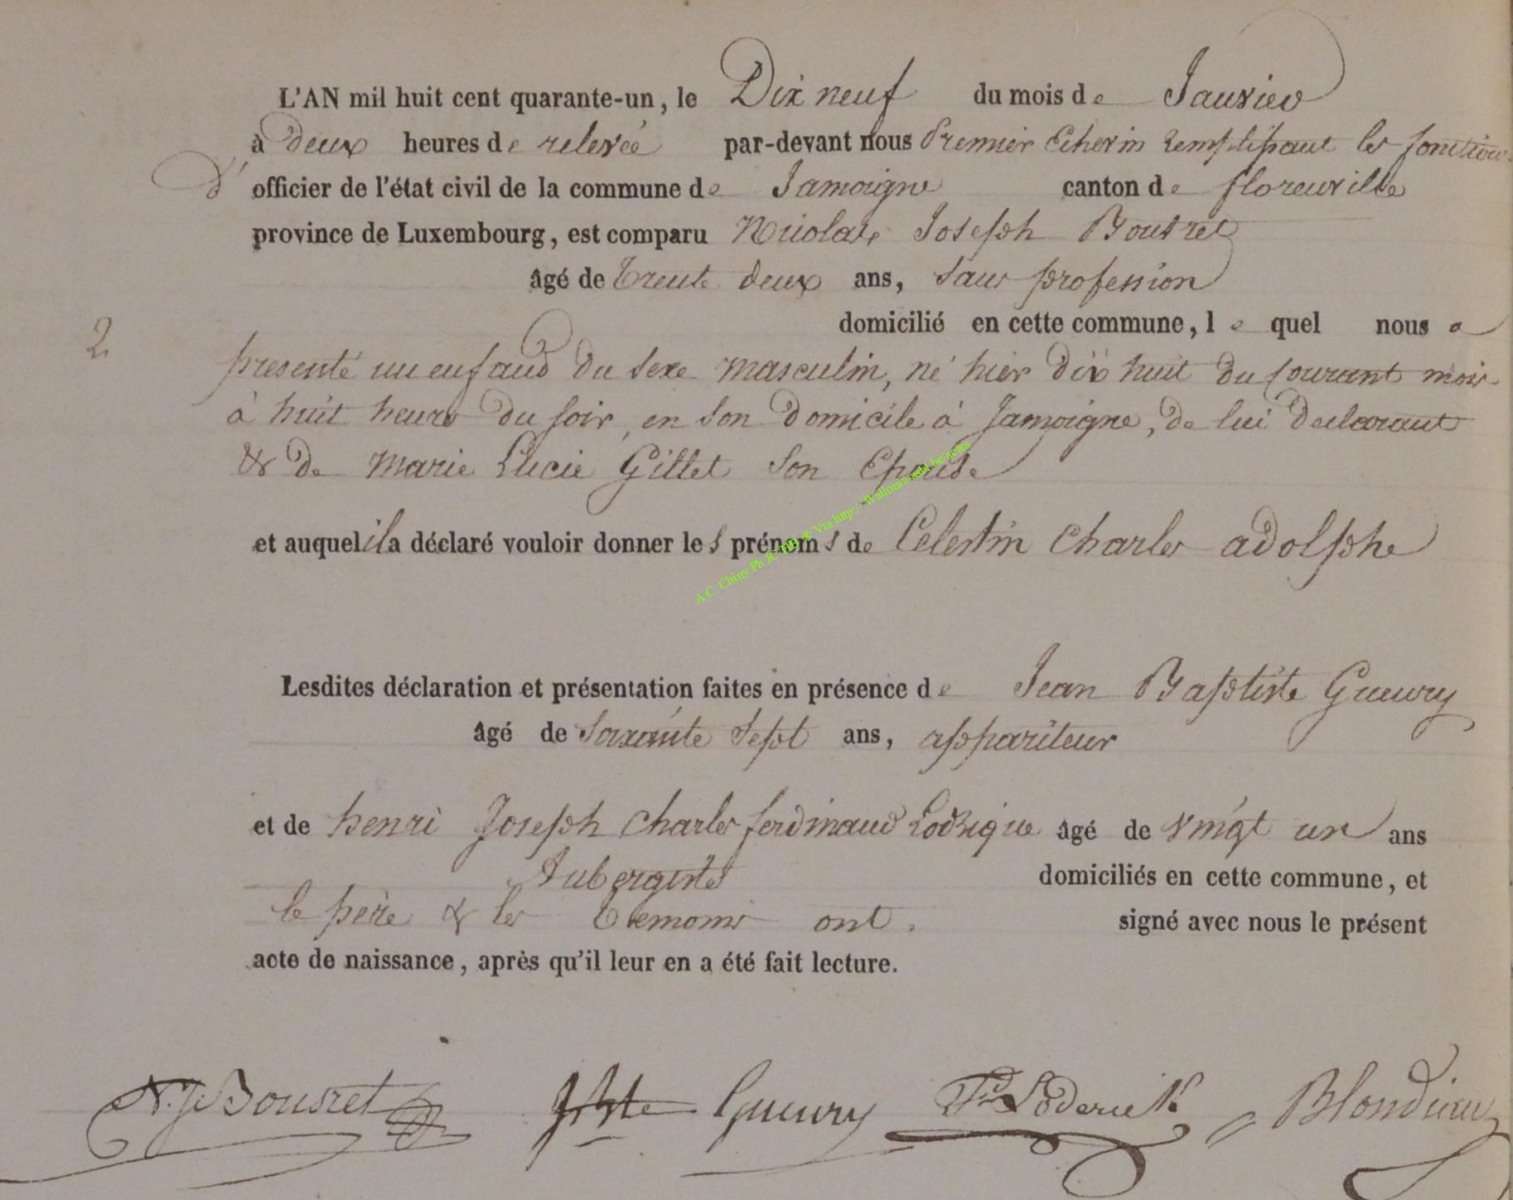 L'AN mil huit cent quarante-un, le Dix neuf du mois de Janvier
à deux heures de relevée par-devant nous Premier Echevin remplissant les fonctions
d' officier de l'état civil de la commune de Jamoigne canton de florenville
province de Luxembourg, est comparu Nicolas Joseph Bousret
âgé de trente deux ans, sans profession
domicilié en cette commune, le quel nous a
2
presenté un enfant du sexe masculin, né hier dix huit du courant mois
à huit heures du soir, en son domicile à Jamoigne, de lui declarant
& de marie Lucie Gillet son Epouse
et auquel il a déclaré vouloir donner les prénoms de Celestin Charles adolphe
Lesdites déclaration et présentation faites en présence de Jean Baptiste Gueury
âgé de soixante sept ans, appariteur
et de henri Joseph Charles ferdinand Lodrique âgé de vingt un ans
Aubergiste domiciliés en cette commune, et
le père & les temoins ont. signé avec nous le présent
acte de naissance, après qu'il leur en a été fait lecture.
N. J. Bousret JBte Gueury Fd Loderick Blondiau
A.C. Chiny Ph